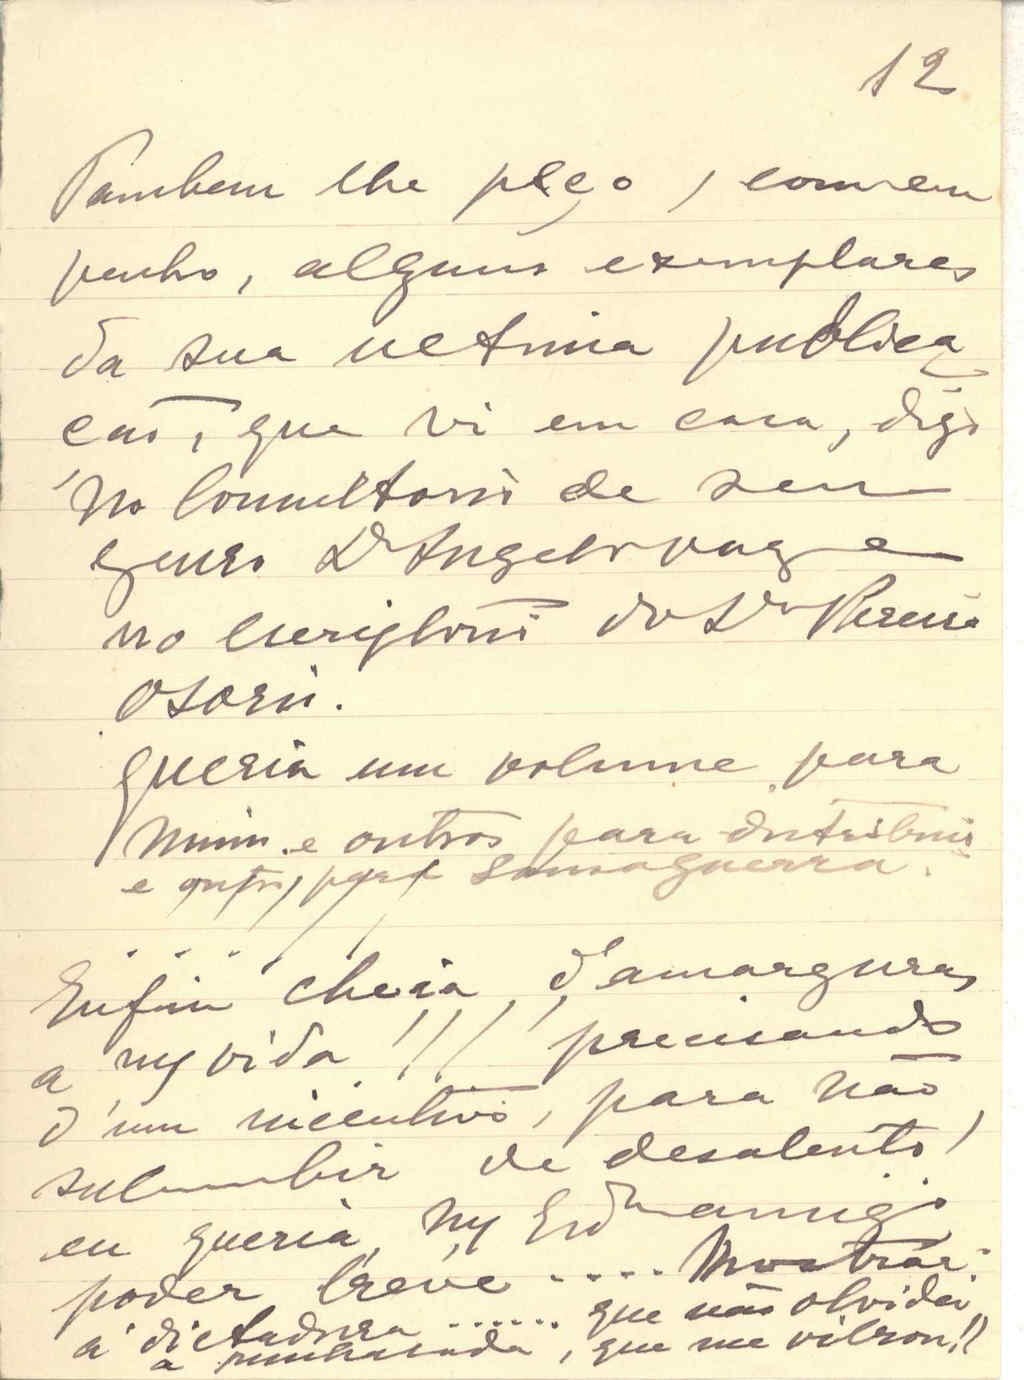 12
Tambem lhe peço, com em
penho, alguns exemplares
da sua ultima publica
ção, que vi em casa, digo
no Consultorio de seu
genro Dr Angelo Vaz e
no escriptorio do Dr Pereira
Osorio.
Queria um volume para
mim e outros para distribuir
e outro para Samaguerra.
. . . .
Enfim cheia d'amarguras
a m/ vida!!! precisando
d'um incentivo, para não
sucumbir de desalento,
eu queria, m/ amigo
poder breve .... Mostrar
á dictadura ...... que não olvidei
a punhalada, que me vibrou!!